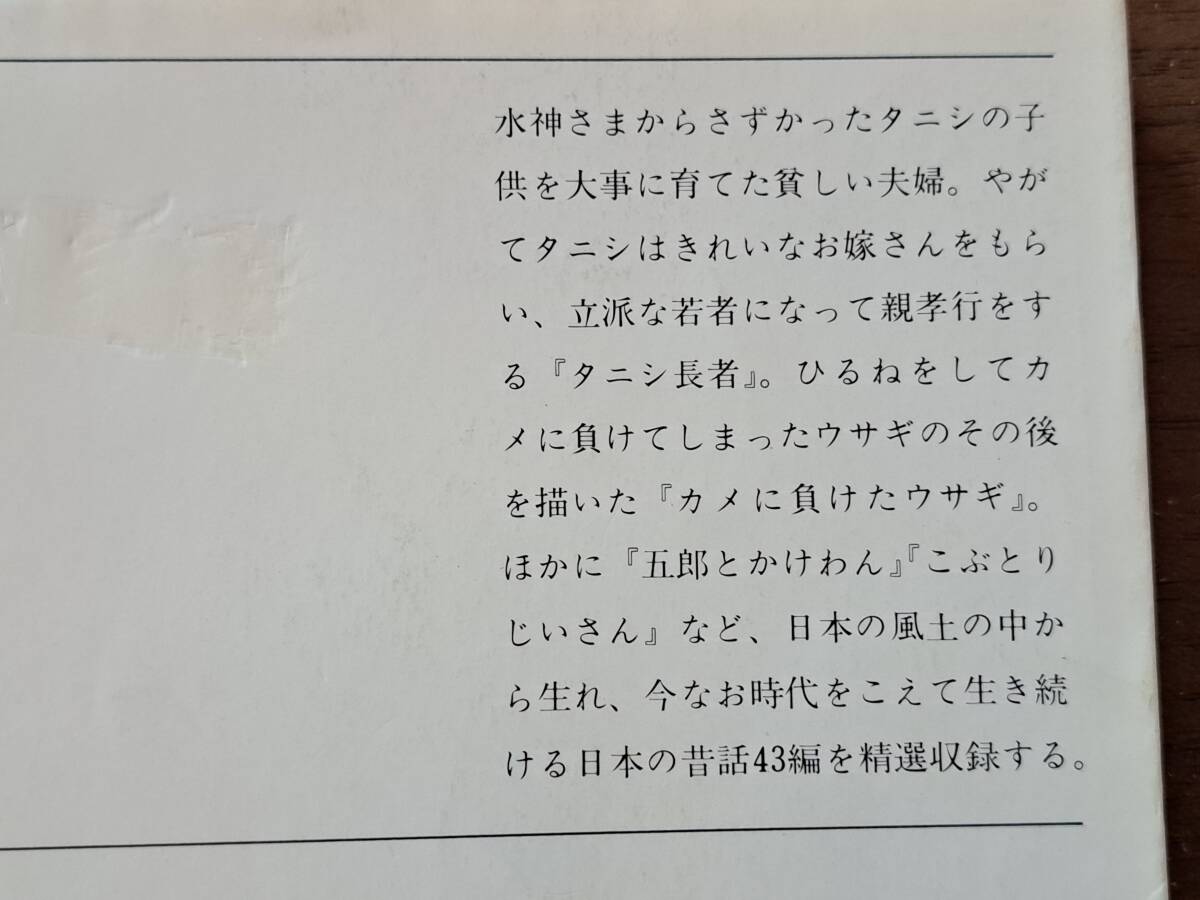 水神さまからさずかったタニシの子
供を大事に育てた貧しい夫婦。やが
てタニシはきれいなお嫁さんをもら
い、立派な若者になって親孝行をす
る『タニシ長者』。ひるねをしてカ
メに負けてしまったウサギのその後
を描いた『カメに負けたウサギ』。
ほかに『五郎とかけわん』『こぶとり
じいさん』など、日本の風土の中か
ら生れ、今なお時代をこえて生き続
ける日本の昔話43編を精選収録する。